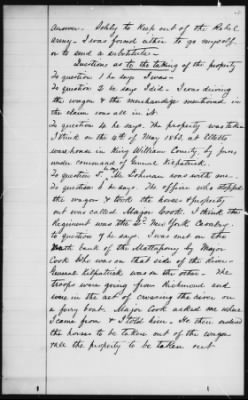 Answer. Solely to Keep out of the Rebel
army. I was forced either to go myself
or to send a substitute.
Questions as to the taking of the property
To question 1 he says I was.
To question 2 he says I did. I was driving
the wagon & the merchandize mentioned in
the claim was all in it.
To question 4 he says. The property was taken
I think on the 4th of May 1863, at
warehouse in King William County, by forces
under command of General Kilpatrick.
To question 5th The was with me.
To question 6 he says. The officer who stopped
the wagon & took the horses & property
out was called Major Cook. I think the
Regiment was the 2d New York Cavalry.
To question 7 he says. I was met on the
North bank of the Mattapony by Major
Cook who was on that side of the River.
General Kilpatrick was on the other. The
troops were going from Richmond and
were in the act of crossing the river on
a ferry boat. Major Cook asked me where
I came from & I told him. He then ordered
the horses to be taken out of the wagon
& all the property to be taken out